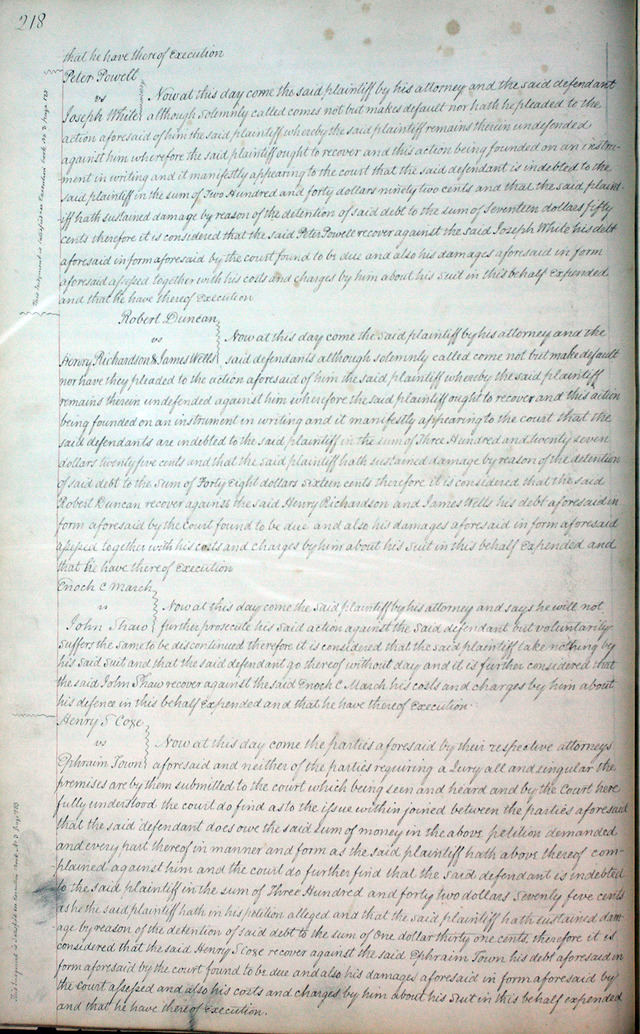 218
that he have thereof Execution
Peter Powell
vs
Joseph White
Now at this day come the said plaintiff by his attorney and the said defendant
although solemnly called comes not but makes default nor hath he pleaded to the
action aforesaid of him the said plaintiff whereby the said plaintiff remains therein undefended
against him wherefore the said plaintiff ought to recover and this action being founded on an instru-
ment in writing and it manifestly appearing to the court that the said defendant is indebted to the
said plaintiff in the sum of Two Hundred and forty dollars ninety two cents and that the said plaint-
iff hath sustained damage by reason of the detention of said debt to the sum of Seventeen dollars fifty
cents therefore it is considered that the said Peter Powell recover against the said Joseph White his debt
aforesaid in form aforesaid by the court found to be due and also his damages aforesaid in form
aforesaid assessed together with his costs and charges by him about his suit in this behalf Expended
and that he have thereof Execution
Robert Duncan
vs
Henry Richardson & James Wells
Now at this day come the said plaintiff by his attorney and the
said defendants although solemnly called come not but make default
nor have they pleaded to the action aforesaid of him the said plaintiff whereby the said plaintiff
remains therein undefended against him wherefore the said plaintiff ought to recover and this action
being founded on an instrument in writing and it manifestly appearing to the court that the
said defendants are indebted to the said plaintiff in the sum of Three Hundred and twenty seven
dollars twenty five cents and that the said plaintiff hath sustained damage by reason of the detention
of said debt to the sum of Forty Eight dollars sixteen cents therefore it is considered that the said
Robert Duncan recover against the said Henry Richardson and James Wells his debt aforesaid in
form aforesaid by the Court found to be due and also his damages aforesaid in form aforesaid
assessed together with his costs and charges by him about his suit in this behalf Expended and
that he have thereof Execution
Enoch C March
vs
John Shaw
Now at this day come the said plaintiff by his attorney and says he will not
further prosecute his said action against the said defendant but voluntarily
suffers the same to be discontinued therefore it is considered that the said plaintiff take nothing by
his said suit and that the said defendant go thereof without day and it is further considered that
the said John Shaw recover against the said Enoch C March his costs and charges by him about
his defence in this behalf Expended and that he have thereof Execution.
Henry S Coxe
vs
Ephraim Town
Now at this day come the parties aforesaid by their respective attorneys
aforesaid and neither of the parties requiring a Jury all and singular the
premises are by them submitted to the court which being seen and heard and by the Court here
fully understood the court do find as to the issue within joined between the parties aforesaid
that the said defendant does owe the said sum of money in the above petition demanded
and every part thereof in manner and form as the said plaintiff hath above thereof com-
plained against him and the court do further find that the said defendant is indebted
to the said plaintiff in the sum of Three Hundred and forty two dollars Seventy five cents
as he the said plaintiff hath in his petition alleged and that the said plaintiff hath sustained dam-
age by reason of the detention of said debt to the sum of One dollar thirty one cents, therefore it is
considered that the said Henry S Coxe recover against the said Ephraim Town his debt aforesaid in
form aforesaid by the court found to be due and also his damages aforesaid in form aforesaid by
the court assessed and also his costs and charges by him about his suit in this behalf expended
and that he have thereof Execution.